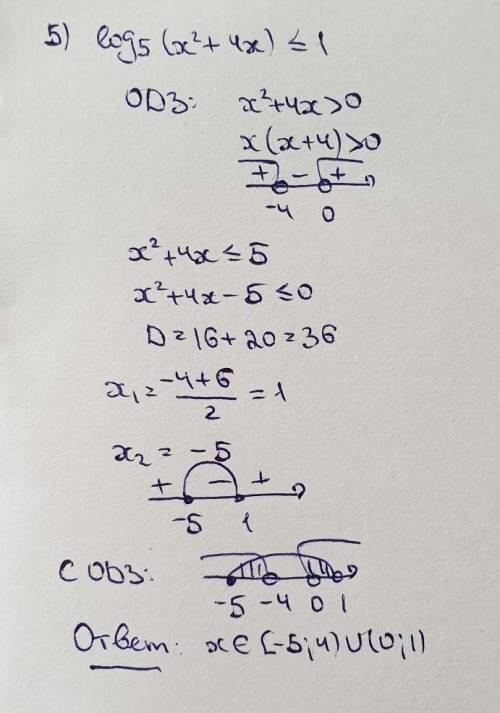 5) log₅ (x² + 4x) ≤ 1
ОДЗ: x² + 4x > 0
x (x + 4) > 0
+ - +
-4 0
x² + 4x ≤ 5
x² + 4x - 5 ≤ 0
D = 16 + 20 = 36
x₁ = (-4 + 6)/2 = 1
x₂ = -5
+ - +
-5 1
С ОДЗ:
-5 -4 0 1
Ответ: x ∈ [-5; 4) ∪ (0; 1)